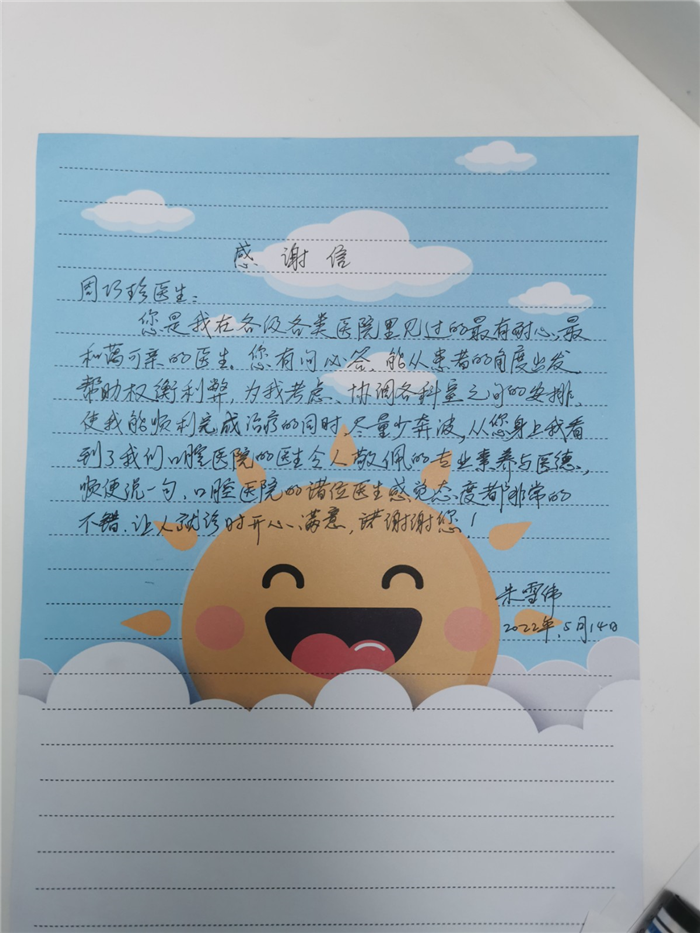 感谢信
周巧珍医生:
您是我在各级各类医院里见过的最有耐心、最
和蔼可亲的医生。您有问必答、能从患者的角度出发
帮助权衡利弊,为我考虑、协调各科室之间的安排,
使我能顺利完成治疗的同时,尽量少奔波,从您身上我看
到了我们口腔医院的医生令人敬佩的专业素养与医德。
顺便说一句,口腔医院的诸位医生感觉态度都非常的
不错,让人就诊时开心、满意,谢谢您!
朱雪伟
2022年.5月14日